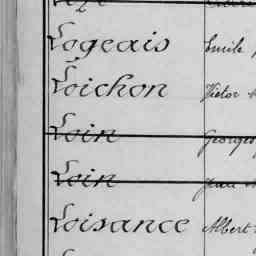 Logeais Emile
Loichon Victor
Loin Georges
Loin Jean
Loisance Albert